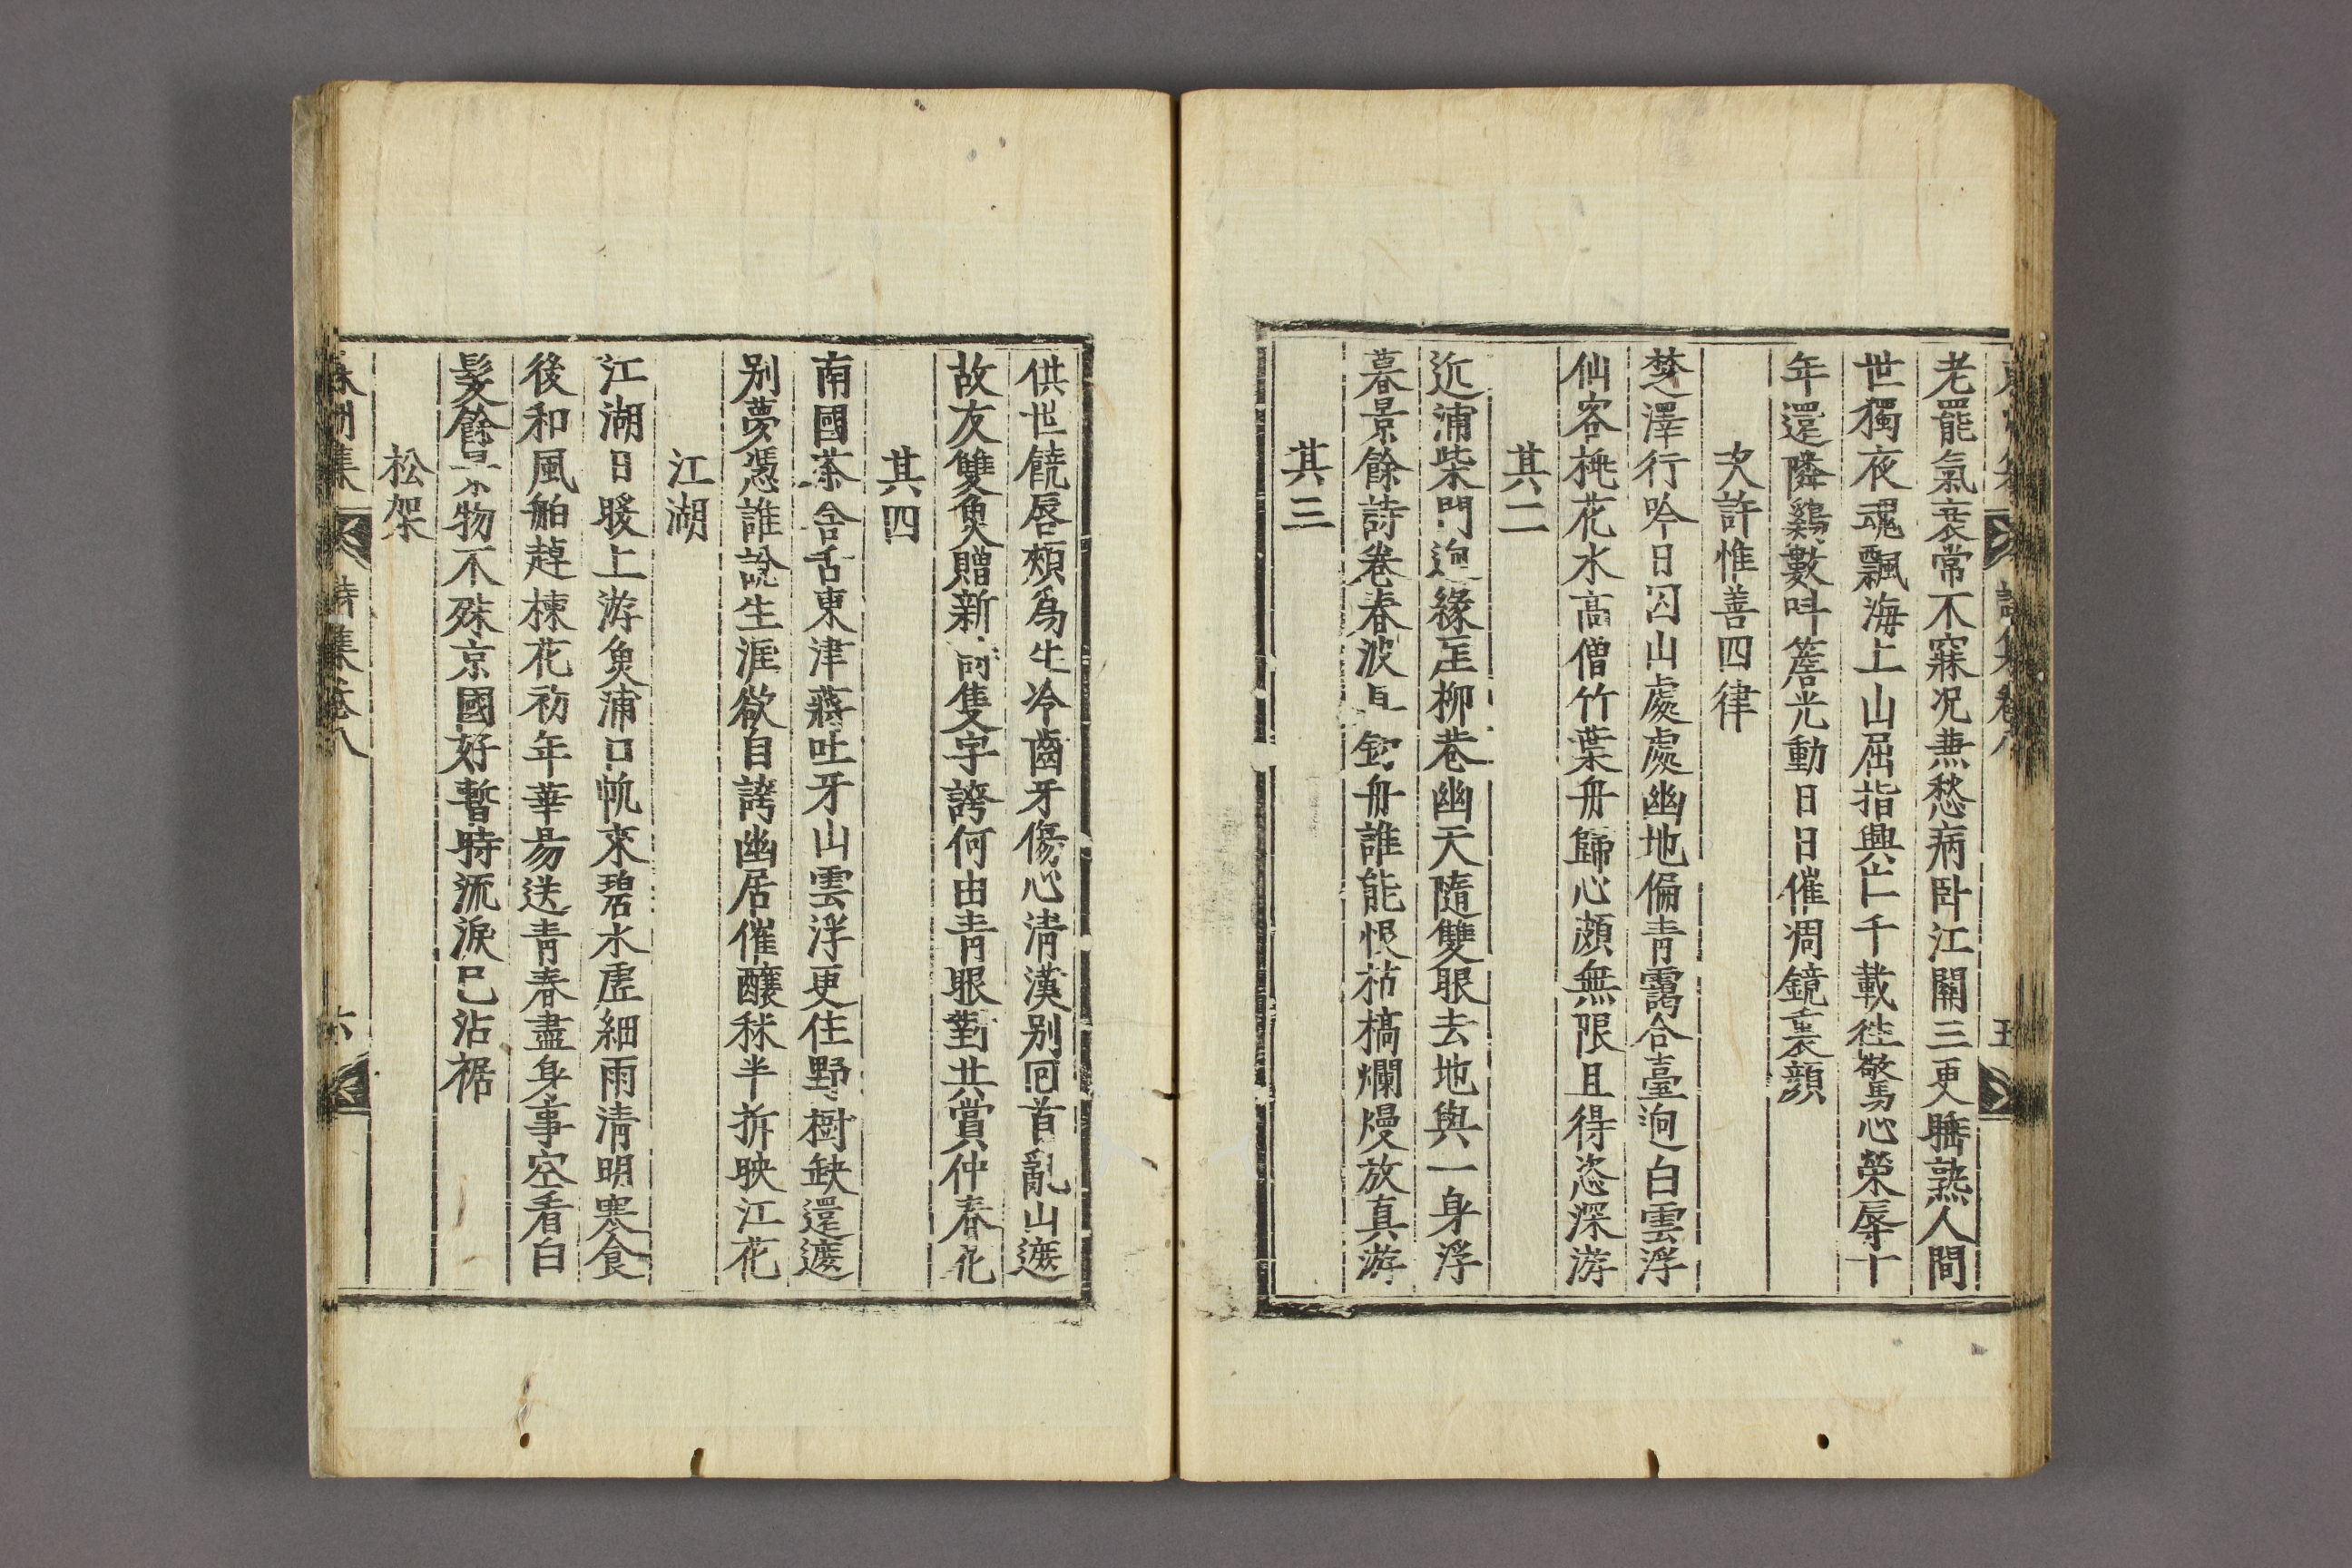 老罷氣衰常不寐况兼愁病卧江關三更睡熟人間
世獨夜魂飄海上山屈指興亡千載徃驚心榮辱十
年還隣鷄數呌簷光動日日催凋鏡裏顔
次許惟善四律
楚澤行吟日囚山處處幽地偏青靄合臺逈白雲浮
仙客桃花水高僧竹葉舟歸心頗無限且得恣深游
其二
近浦柴門逈緣厓柳巷幽天隨雙眼去地與一身浮
暮景餘詩卷春波且釣舟誰能恨枯槁爛熳放真游
其三
五
供世饒唇頰爲生冷齒牙傷心淸漢别回首亂山遮
故友雙魚贈新詩隻字誇何由青眼對共賞仲春花
其四
南國茶含舌東津蔣吐牙山雲浮更住野樹缺還遮
别夢憑誰說生涯欲自誇幽居催釀秫半拆映江花
江湖
江湖日暖上游魚浦口帆來碧水虛細雨淸明寒食
後和風舶趠楝花初年華易送青春盡身事空看白
髮餘景物不殊京國好暫時流淚已沾裾
松架
詩集卷八
六